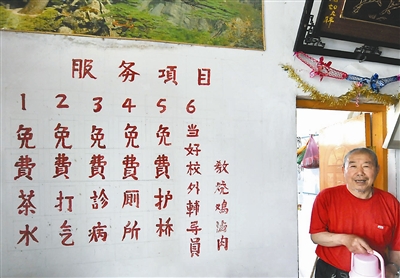 服务項目
1免費茶水
2免費打气
3免費診病
4免費厠所
5免費护
6当好校外輔导員
教烧鸡滷肉